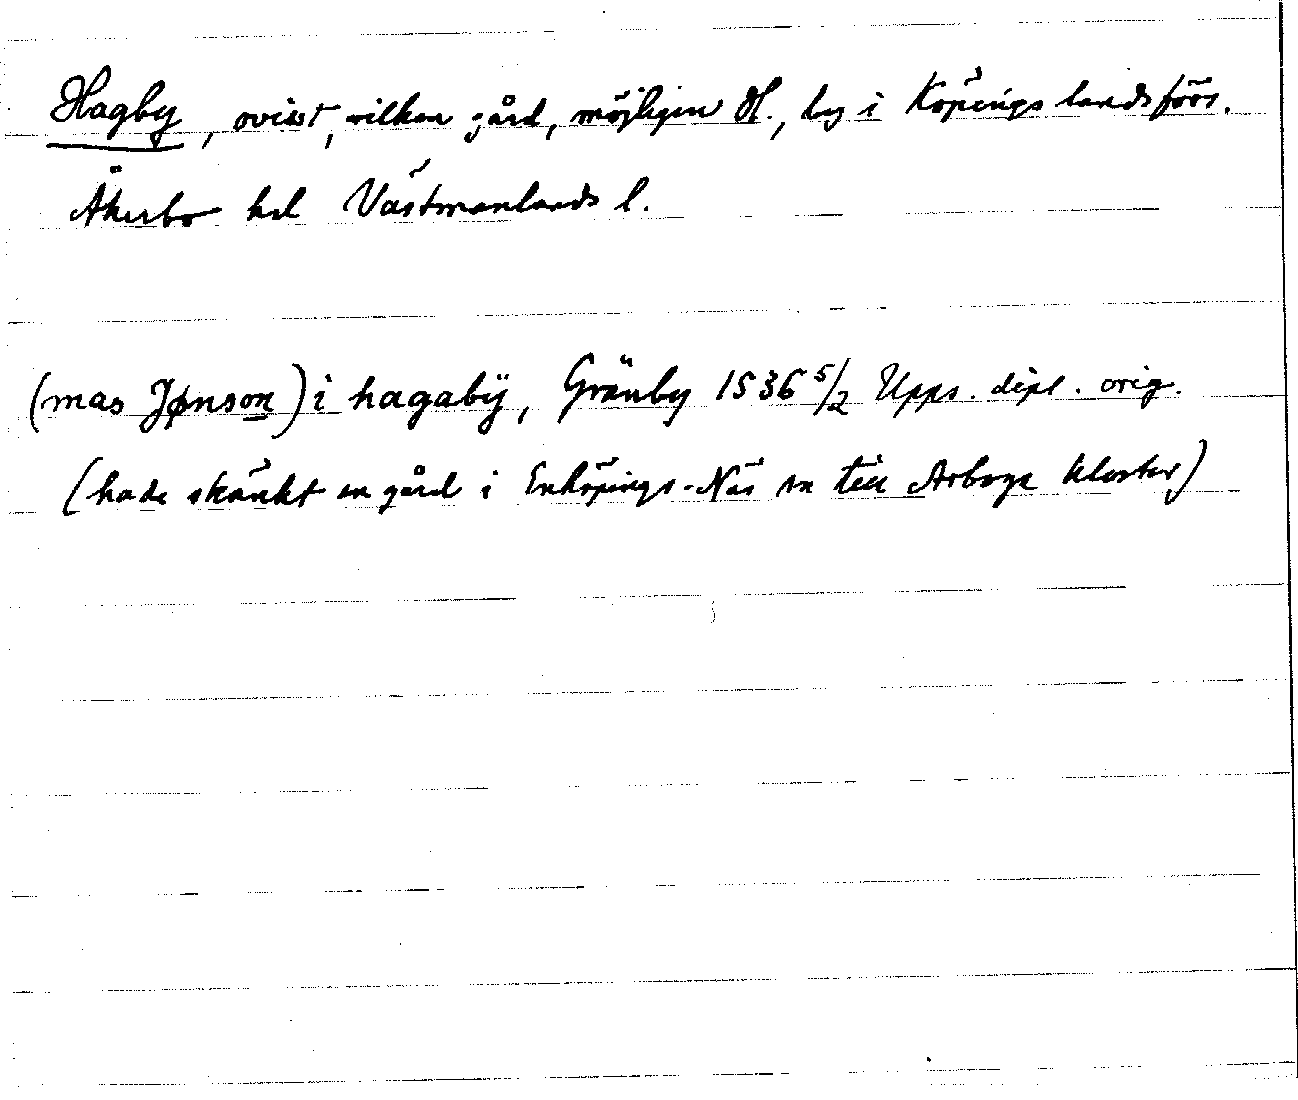 Hagby, ovisst, vilken gård, möjligen H., by i Köpings landsförs.
Åkerbo hd Västmanlands l.
(mas Jønson) i hagabÿ, Gränby 1536 5/2 Upps. dipl. orig.
(hade skänkt en gård i Enköpings-Näs sn till Arboga kloster)